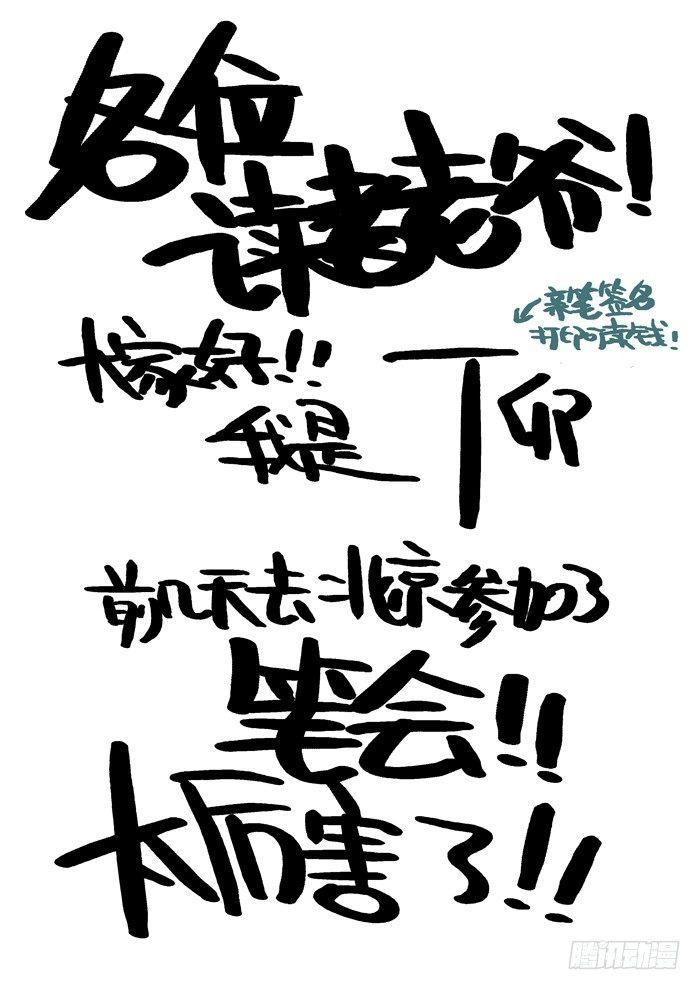 各位
读者老爷！
大家好！！
我是 丁卯
亲笔签名
打印卖钱！
前几天去北京参加了
笔会！！
太厉害了！！
腾讯动漫